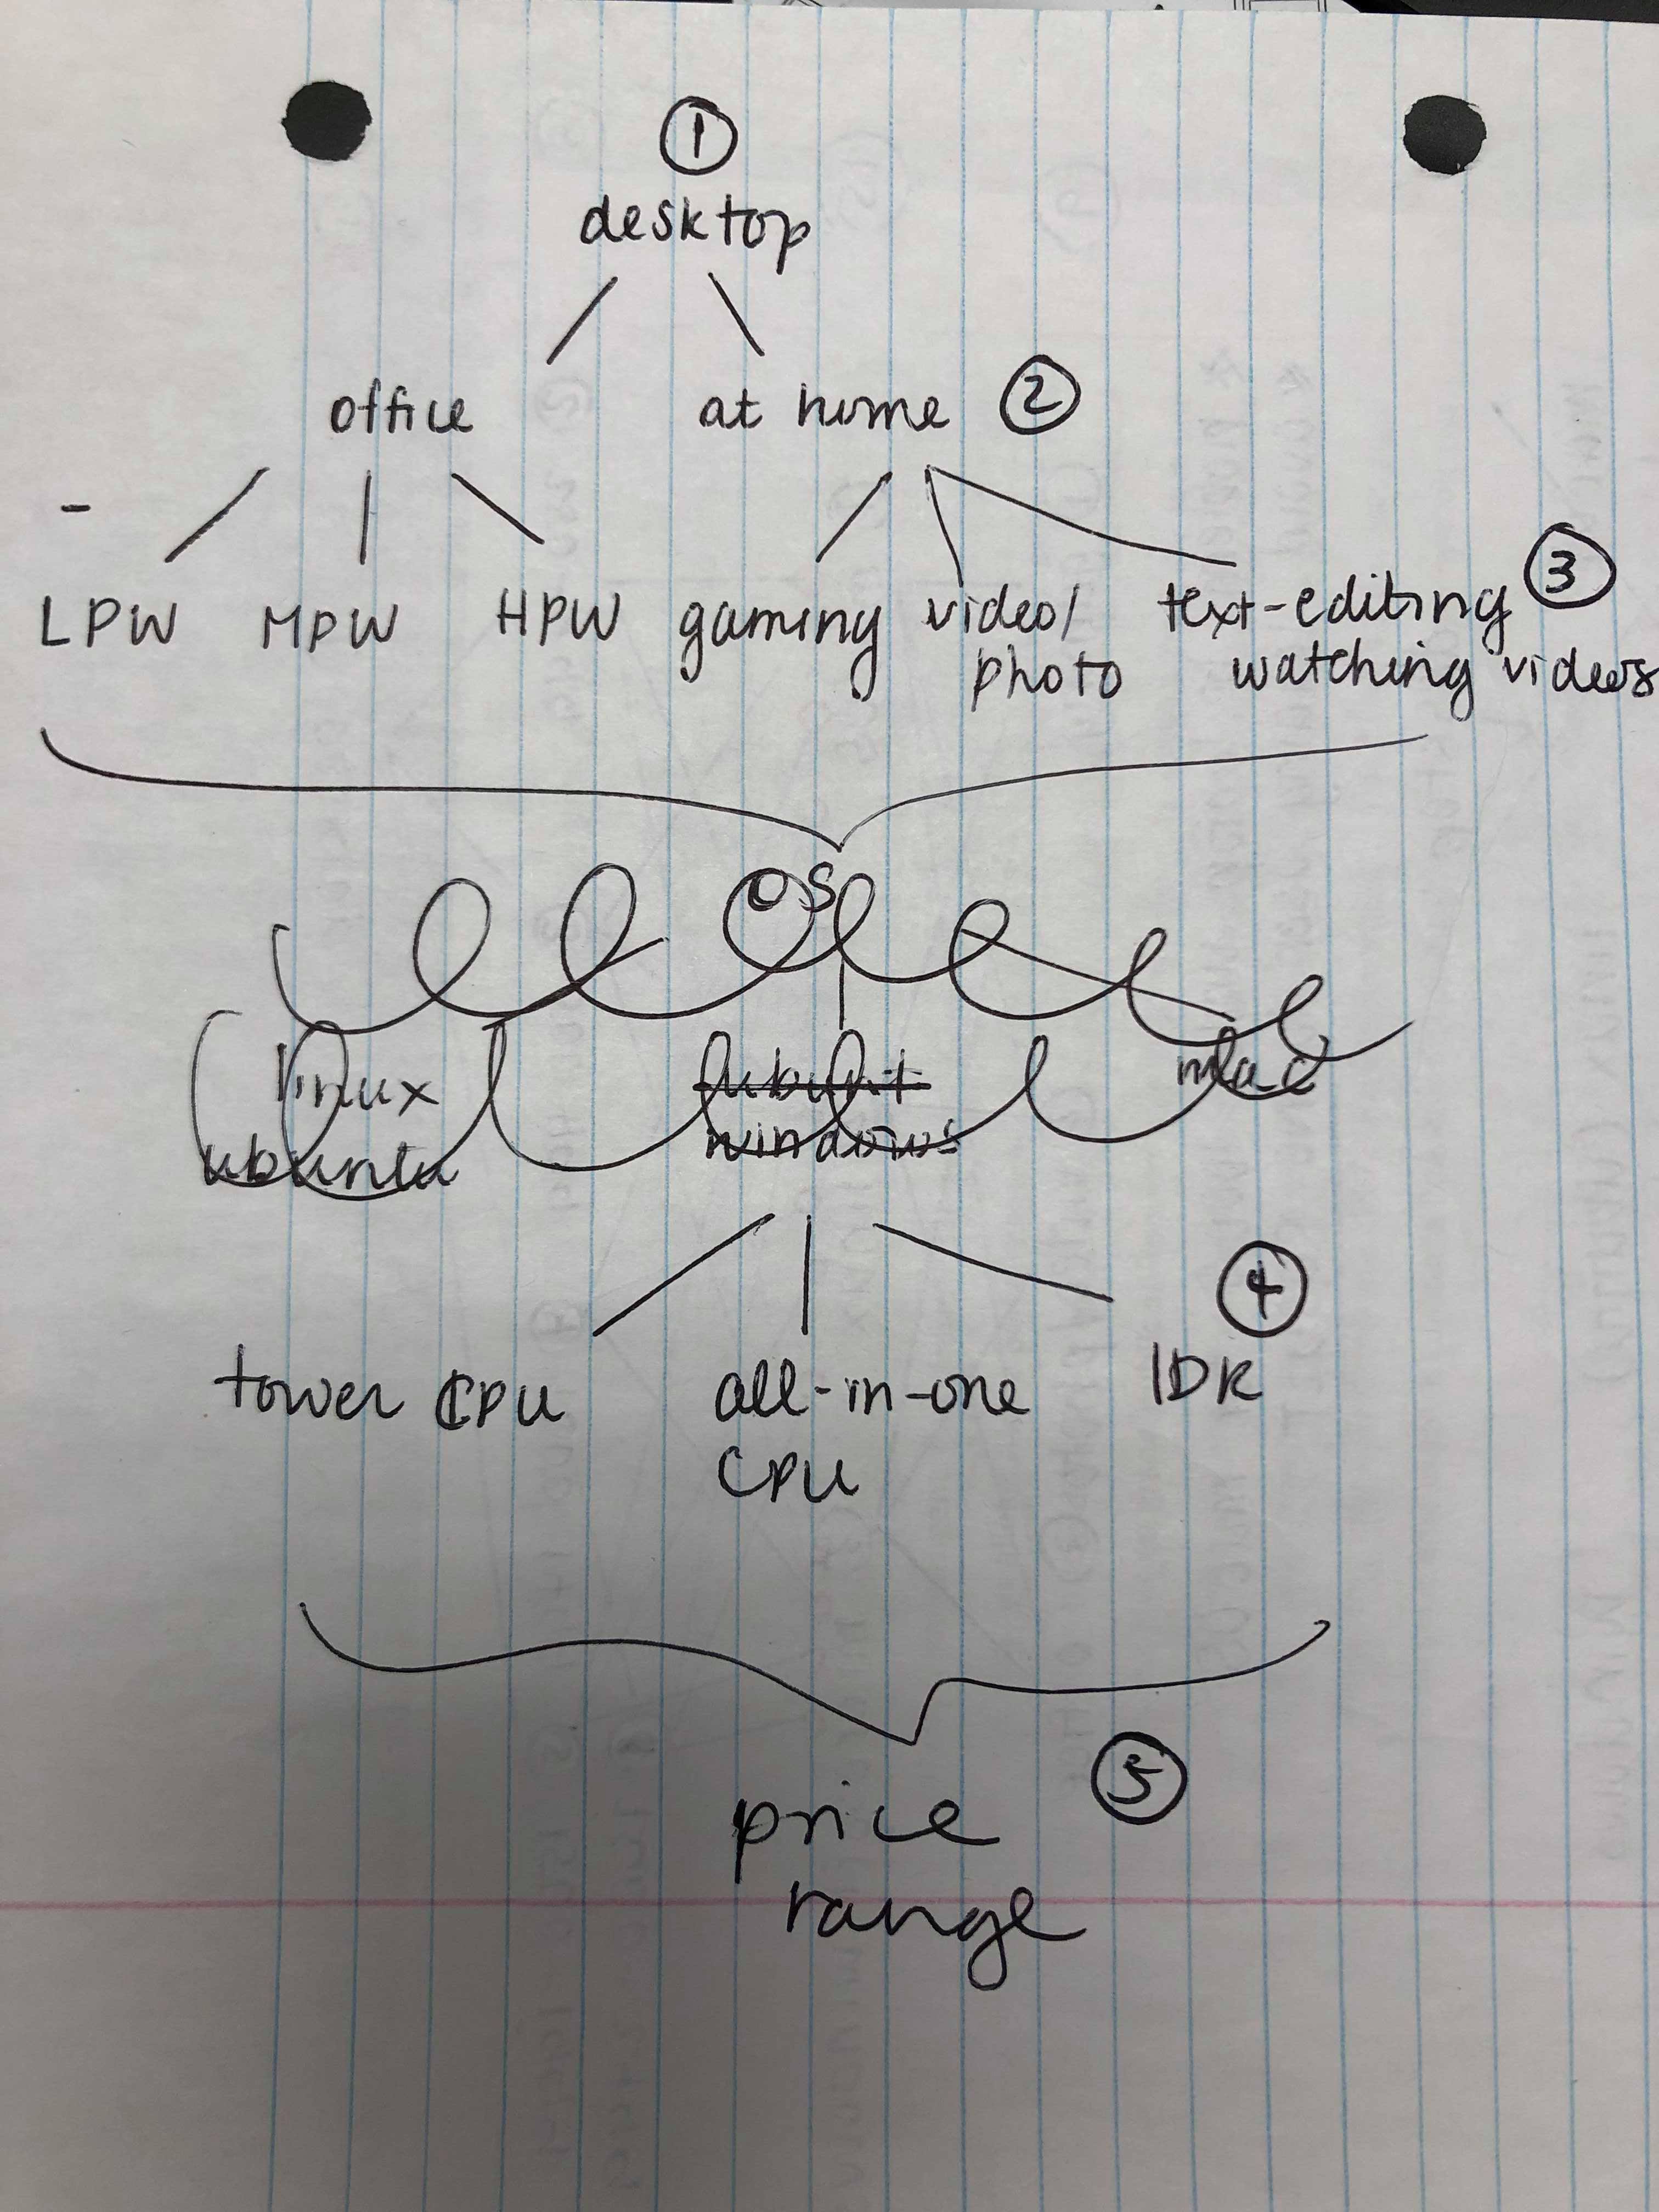 ①
desktop
office at home ②
LPW MPW HPW gaming video/ text-editing ③
photo watching videos
OS
linux mac
ubuntu windows
④
tower CPU all-in-one IDK
CPU
price ⑤
range